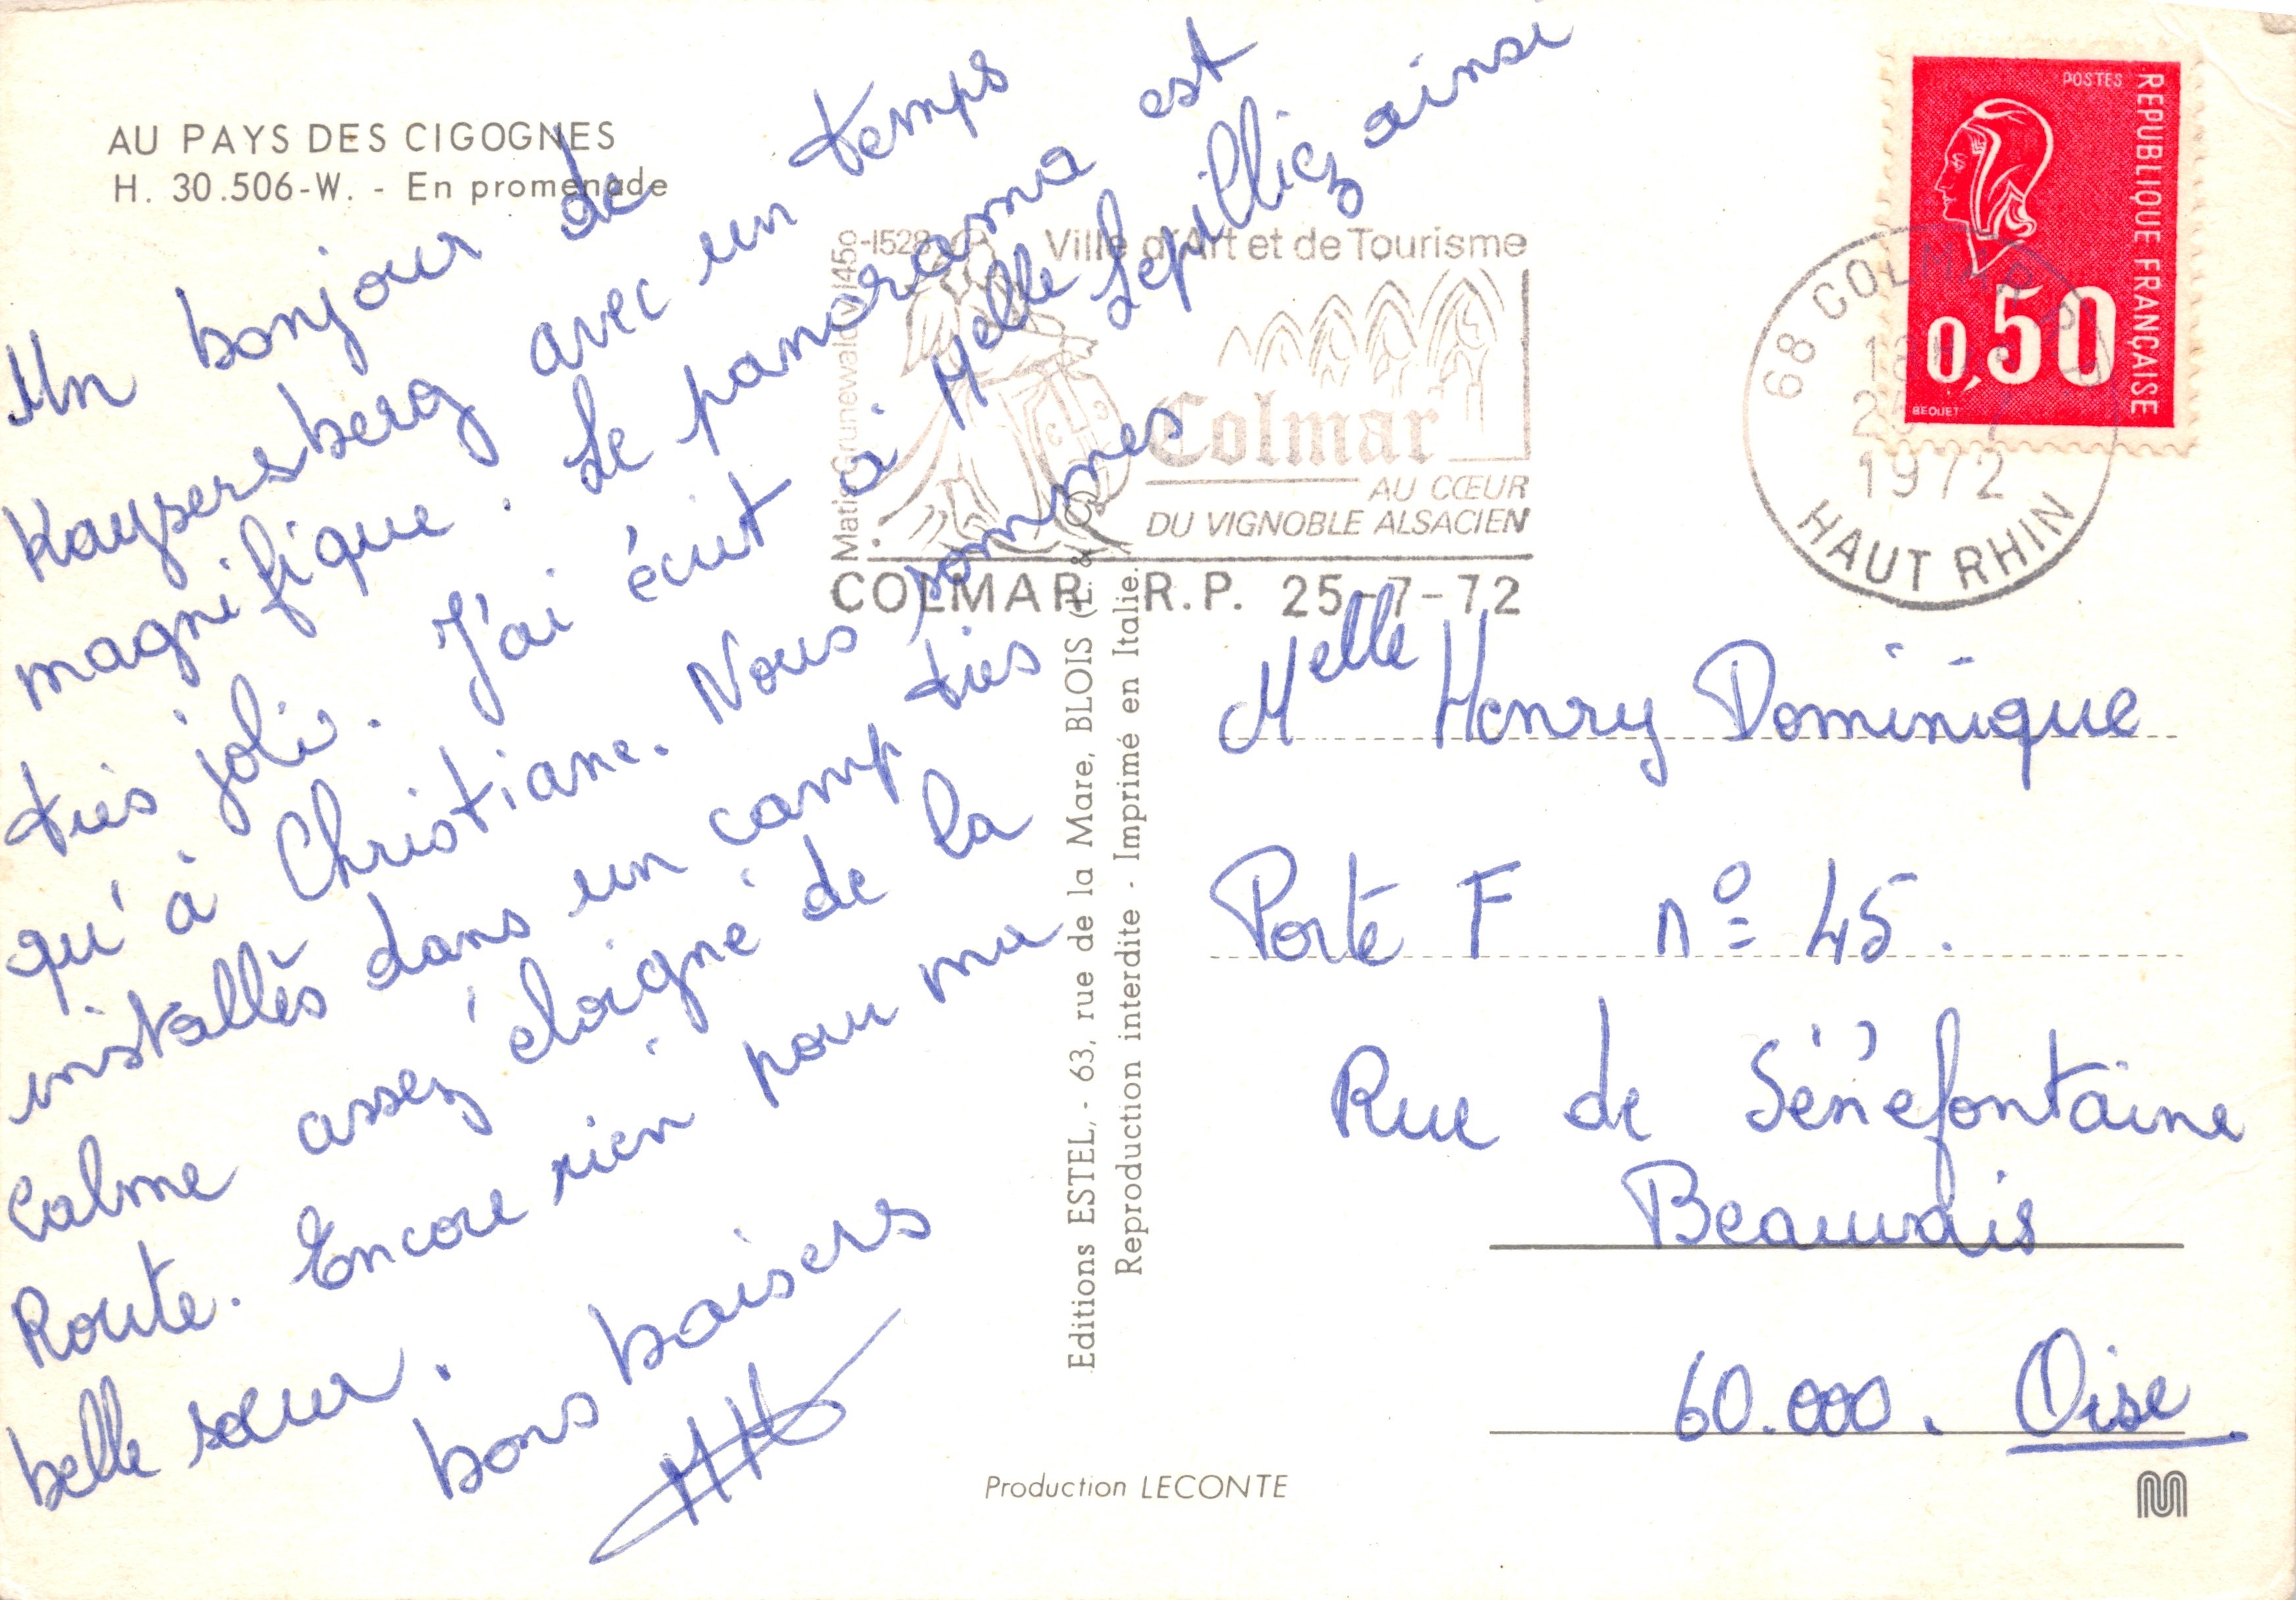 AU PAYS DES CIGOGNES
H. 30.506-W. - En promenade
Un bonjour de
Kaysersberg avec un temps
magnifique. Le panorama est
très joli. J'ai écrit à Melle Lepilliez ainsi
qu'à Christiane. Nous sommes
installés dans un camp très
Calme assez éloigné de la
Route. Encore rien pour ma
belle sœur.
bons baisers
Editions ESTEL, - 63, rue de la Mare, BLOIS (L. & C.)
Reproduction interdite - Imprimé en Italie.
Production LECONTE
Matis Grunewald 1450-1528
Ville d'Art et de Tourisme
Colmar
AU CŒUR
DU VIGNOBLE ALSACIEN
COLMAR R.P. 25-7-72
POSTES
REPUBLIQUE FRANÇAISE
0,50
BEQUET
68 COLMAR R.P.
1972
HAUT RHIN
Melle Henry Dominique
Porte F nº 45.
Rue de Sénéfontaine
Beauvais
60.000. Oise